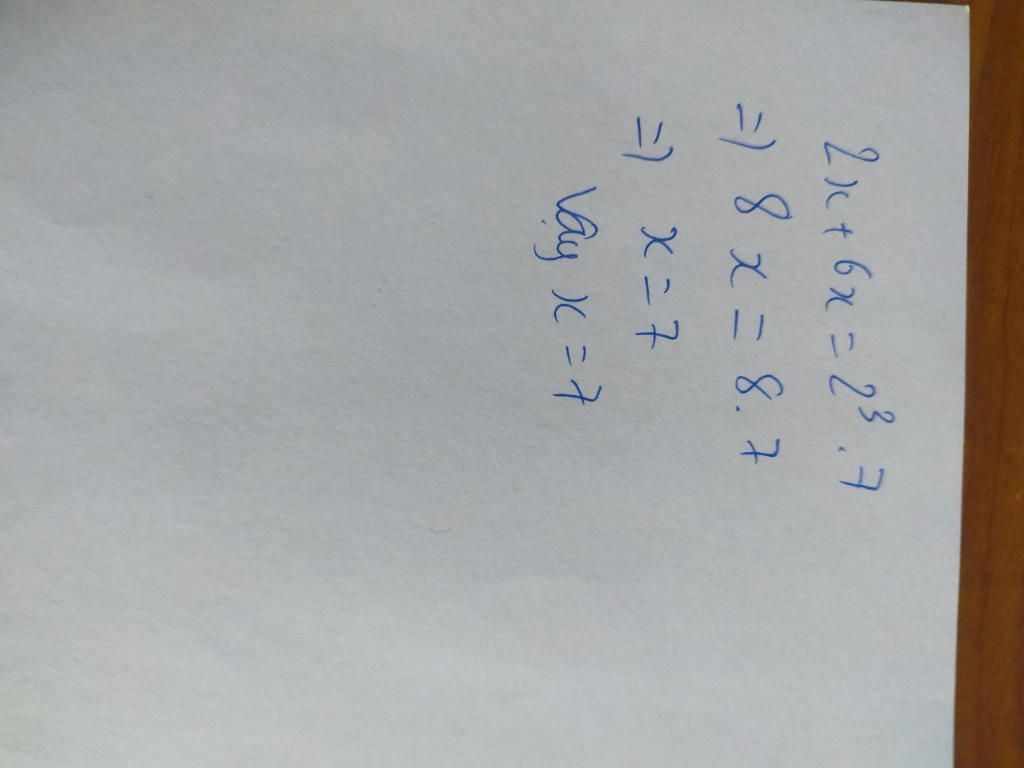 2x + 6x = 2³ . 7
=) 8x = 8 . 7
=) x = 7
Vậy x = 7